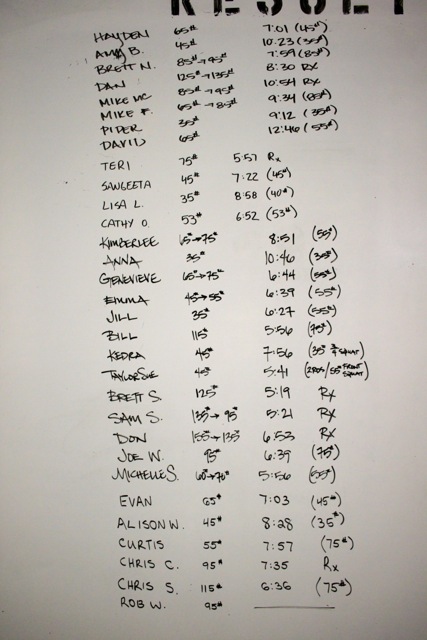 RESULT
HAYDEN 65# 7:01 (45#)
AMY B. 45# 10:23 (35#)
BRETT N. 85#→95# 7:59 (85#)
DAN 125#→135# 8:30 RX
MIKE MC 85#→95# 10:54 RX
MIKE F. 65#→85# 9:34
PIPER 35# 9:12 (35#)
DAVID 65# 12:46 (55#)
TERI 75# 5:57 Rx
SANGEETA 45# 7:22 (45#)
LISA L. 35# 8:58 (40#)
CATHY O. 53# 6:52 (53#)
KIMBERLEE 65#→75# 8:51 (55#)
ANNA 35# 10:46 (35#)
GENEVIEVE 65#→75# 6:44 (55#)
EMMA 45#→55# 6:39 (55#)
JILL 35# 6:27 (55#)
BILL 115# 5:56 (75#)
KEDRA 45# 7:56 (35# SQUAT)
TAYLOR SUE 45# 5:41 FRONT SQUAT)
BRETT S. 125# 5:19 Rx
SAM S. 135#→95# 5:21 Rx
DON 155#→135# 6:53 Rx
JOE W. 95# 6:39 (75#)
MICHELLE S. 60#→70# 5:56 (55#)
EVAN 65# 7:03 (45#)
ALISON W. 45# 8:28 (35#)
CURTIS 55# 7:57 (75#)
CHRIS C. 95# 7:35 Rx
CHRIS S. 115# 6:36 (75#)
ROB W. 95#